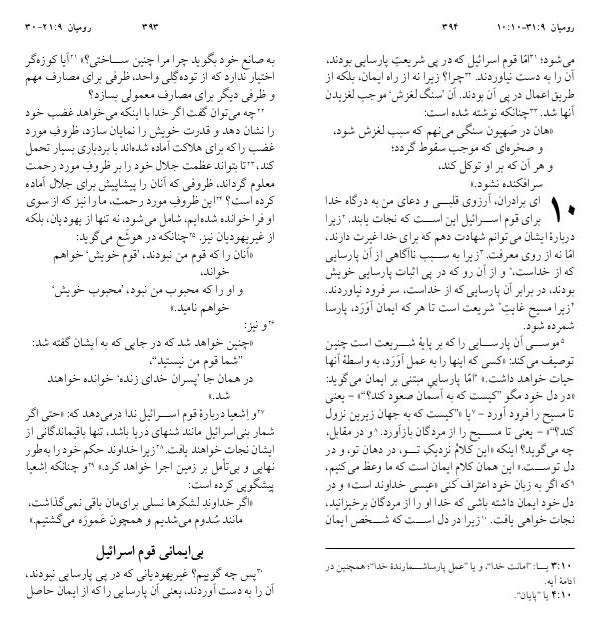 رومیان ۲۱:۹-۳۰ ۳۹۳
به صانع خود بگوید چرا مرا چنین ساختی؟» ۲۱آیا کوزه‌گر
اختیار ندارد که از توده‌گِلی واحد، ظرفی برای مصارف مهم
و ظرفی دیگر برای مصارف معمولی بسازد؟
۲۲چه می‌توان گفت اگر خدا با اینکه می‌خواهد غضب خود
را نشان دهد و قدرت خویش را نمایان سازد، ظروفِ مورد
غضب را که برای هلاکت آماده شده‌اند با بردباری بسیار تحمل
کند، ۲۳تا بتواند عظمت جلال خود را بر ظروفِ مورد رحمت
معلوم گرداند، ظروفی که آنان را پیشاپیش برای جلال آماده
کرده است؟ ۲۴این ظروفِ مورد رحمت، ما را نیز که از سوی
او فرا خوانده شده‌ایم، شامل می‌شود، نه تنها از یهودیان، بلکه
از غیریهودیان نیز. ۲۵چنانکه در هوشَع می‌گوید:
«آنان را که قوم من نبودند، ’قوم خویش‘ خواهم
خواند،
و او را که محبوب من نبود، ’محبوب خویش‘
خواهم نامید.»
۲۶و نیز:
«چنین خواهد شد که در جایی که به ایشان گفته شد:
”شما قوم من نیستید“،
در همان جا ’پسران خدای زنده‘ خوانده خواهند
شد.»
۲۷و اِشعیا دربارهٔ قوم اسرائیل ندا درمی‌دهد که: «حتی اگر
شمار بنی‌اسرائیل مانند شنهای دریا باشد، تنها باقیماندگانی از
ایشان نجات خواهند یافت. ۲۸زیرا خداوند حکم خود را به‌طور
نهایی و بی‌تأمل بر زمین اجرا خواهد کرد.» ۲۹و چنانکه اِشعیا
پیشگویی کرده است:
«اگر خداوندِ لشکرها نسلی برای‌مان باقی نمی‌گذاشت،
مانند سُدوم می‌شدیم و همچون عَمورَه می‌گشتیم.»
بی‌ایمانی قوم اسرائیل
۳۰پس چه گوییم؟ غیریهودیانی که در پی پارسایی نبودند،
آن را به دست آوردند، یعنی آن پارسایی را که از ایمان حاصل
رومیان ۳۱:۹-۱۰:۱۰ ۳۹۴
می‌شود؛ ۳۱امّا قوم اسرائیل که در پی شریعتِ پارسایی بودند،
آن را به دست نیاوردند. ۳۲چرا؟ زیرا نه از راه ایمان، بلکه از
طریق اعمال در پی آن بودند. آن ’سنگ لغزش‘ موجب لغزیدن
آنها شد. ۳۳چنانکه نوشته شده است:
«هان در صَهیون سنگی می‌نهم که سبب لغزش شود،
و صخره‌ای که موجب سقوط گردد؛
و هر آن که بر او توکل کند،
سرافکنده نشود.»
۱۰ ای برادران، آرزوی قلبی و دعای من به درگاه خدا
برای قوم اسرائیل این است که نجات یابند. ۲زیرا
دربارهٔ ایشان می‌توانم شهادت دهم که برای خدا غیرت دارند،
امّا نه از روی معرفت. ۳زیرا به سبب ناآگاهی از آن پارسایی
که از خداست،* و از آن رو که در پی اثبات پارسایی خویش
بودند، در برابر آن پارسایی که از خداست، سر فرود نیاوردند.
۴زیرا مسیح غایتِ* شریعت است تا هر که ایمان آوَرَد، پارسا
شمرده شود.
۵موسی آن پارسایی را که بر پایهٔ شریعت است چنین
توصیف می‌کند: «کسی که اینها را به عمل آوَرَد، به واسطهٔ آنها
حیات خواهد داشت.» ۶امّا پارساییِ مبتنی بر ایمان می‌گوید:
«در دل خود مگو ”کیست که به آسمان صعود کند؟“» - یعنی
تا مسیح را فرود آورد - ۷یا «”کیست که به جهان زیرین نزول
کند؟“» - یعنی تا مسیح را از مردگان بازآورد. ۸و در مقابل،
چه می‌گوید؟ اینکه «این کلامْ نزدیکِ تو، در دهان تو، و در
دل توست.» این همان کلامِ ایمان است که ما وعظ می‌کنیم،
۹که اگر به زبان خود اعتراف کنی «عیسی خداوند است» و در
دل خود ایمان داشته باشی که خدا او را از مردگان برخیزانید،
نجات خواهی یافت. ۱۰زیرا در دل است که شخص ایمان
۳:۱۰ یا: ”امانت خدا“، و یا ”عمل پارساشمارندهٔ خدا“؛ همچنین در
ادامهٔ آیه.
۴:۱۰ یا ”پایان“.